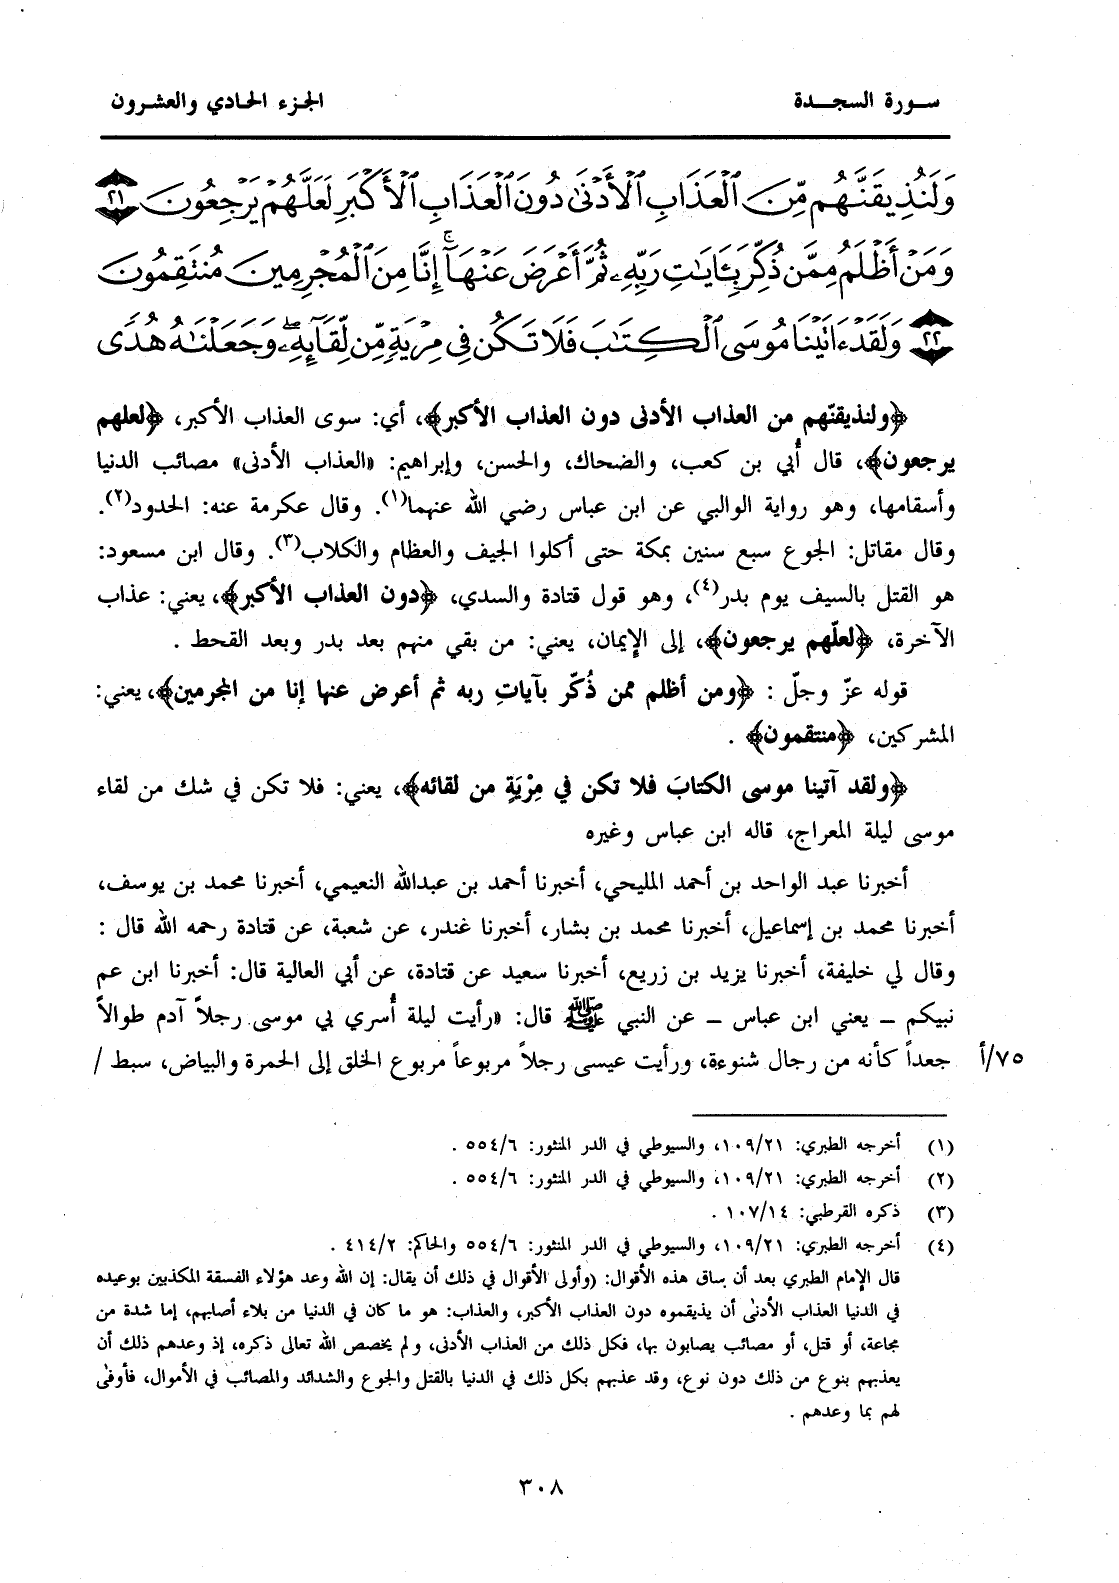 سورة السجدة
الجزء الحادي والعشرون
وَلَنُذِيقَنَّهُم مِّنَ ٱلْعَذَابِ ٱلْأَدْنَىٰ دُونَ ٱلْعَذَابِ ٱلْأَكْبَرِ لَعَلَّهُمْ يَرْجِعُونَ ٢١
وَمَنْ أَظْلَمُ مِمَّن ذُكِّرَ بِـَٔايَـٰتِ رَبِّهِۦ ثُمَّ أَعْرَضَ عَنْهَآ ۚ إِنَّا مِنَ ٱلْمُجْرِمِينَ مُنتَقِمُونَ
٢٢ وَلَقَدْ ءَاتَيْنَا مُوسَى ٱلْكِتَـٰبَ فَلَا تَكُن فِى مِرْيَةٍ مِّن لِّقَآئِهِۦ ۖ وَجَعَلْنَـٰهُ هُدًى
﴿ولنذيقنّهم من العذاب الأدنى دون العذاب الأكبر﴾، أي: سوى العذاب الأكبر، ﴿لعلهم
يرجعون﴾، قال أُبي بن كعب، والضحاك، والحسن، وإبراهيم: «العذاب الأدنى» مصائب الدنيا
وأسقامها، وهو رواية الوالبي عن ابن عباس رضي الله عنهما(١). وقال عكرمة عنه: الحدود(٢).
وقال مقاتل: الجوع سبع سنين بمكة حتى أكلوا الجيف والعظام والكلاب(٣). وقال ابن مسعود:
هو القتل بالسيف يوم بدر(٤)، وهو قول قتادة والسدي، ﴿دون العذاب الأكبر﴾، يعني: عذاب
الآخرة، ﴿لعلّهم يرجعون﴾، إلى الإيمان، يعني: من بقي منهم بعد بدر وبعد القحط .
قوله عزّ وجلّ : ﴿ومن أظلم ممن ذُكّر بآياتِ ربه ثم أعرض عنها إنا من المجرمين﴾، يعني:
المشركين، ﴿منتقمون﴾ .
﴿ولقد آتينا موسى الكتابَ فلا تكن في مِرْيَةٍ من لقائه﴾، يعني: فلا تكن في شك من لقاء
موسى ليلة المعراج، قاله ابن عباس وغيره
أخبرنا عبد الواحد بن أحمد المليحي، أخبرنا أحمد بن عبدالله النعيمي، أخبرنا محمد بن يوسف،
أخبرنا محمد بن إسماعيل، أخبرنا محمد بن بشار، أخبرنا غندر، عن شعبة، عن قتادة رحمه الله قال :
وقال لي خليفة، أخبرنا يزيد بن زريع، أخبرنا سعيد عن قتادة، عن أبي العالية قال: أخبرنا ابن عم
نبيكم ــ يعني ابن عباس ــ عن النبي ﷺ قال: «رأيت ليلة أُسري بي موسى رجلاً آدم طوالاً
جعداً كأنه من رجال شنوءة، ورأيت عيسى رجلاً مربوعاً مربوع الخلق إلى الحمرة والبياض، سبط /
٧٥/أ
(١) أخرجه الطبري: ١٠٩/٢١، والسيوطي في الدر المنثور: ٥٥٤/٦ .
(٢) أخرجه الطبري: ١٠٩/٢١، والسيوطي في الدر المنثور: ٥٥٤/٦ .
(٣) ذكره القرطبي: ١٠٧/١٤ .
(٤) أخرجه الطبري: ١٠٩/٢١، والسيوطي في الدر المنثور: ٥٥٤/٦ والحاكم: ٤١٤/٢ .
قال الإمام الطبري بعد أن ساق هذه الأقوال: (وأولى الأقوال في ذلك أن يقال: إن الله وعد هؤلاء الفسقة المكذبين بوعيده
في الدنيا العذاب الأدنى أن يذيقموه دون العذاب الأكبر، والعذاب: هو ما كان في الدنيا من بلاء أصابهم، إما شدة من
مجاعة، أو قتل، أو مصائب يصابون بها، فكل ذلك من العذاب الأدنى، ولم يخصص الله تعالى ذكره، إذ وعدهم ذلك أن
يعذبهم بنوع من ذلك دون نوع، وقد عذبهم بكل ذلك في الدنيا بالقتل والجوع والشدائد والمصائب في الأموال، فأوفى
لهم بما وعدهم .
٣٠٨